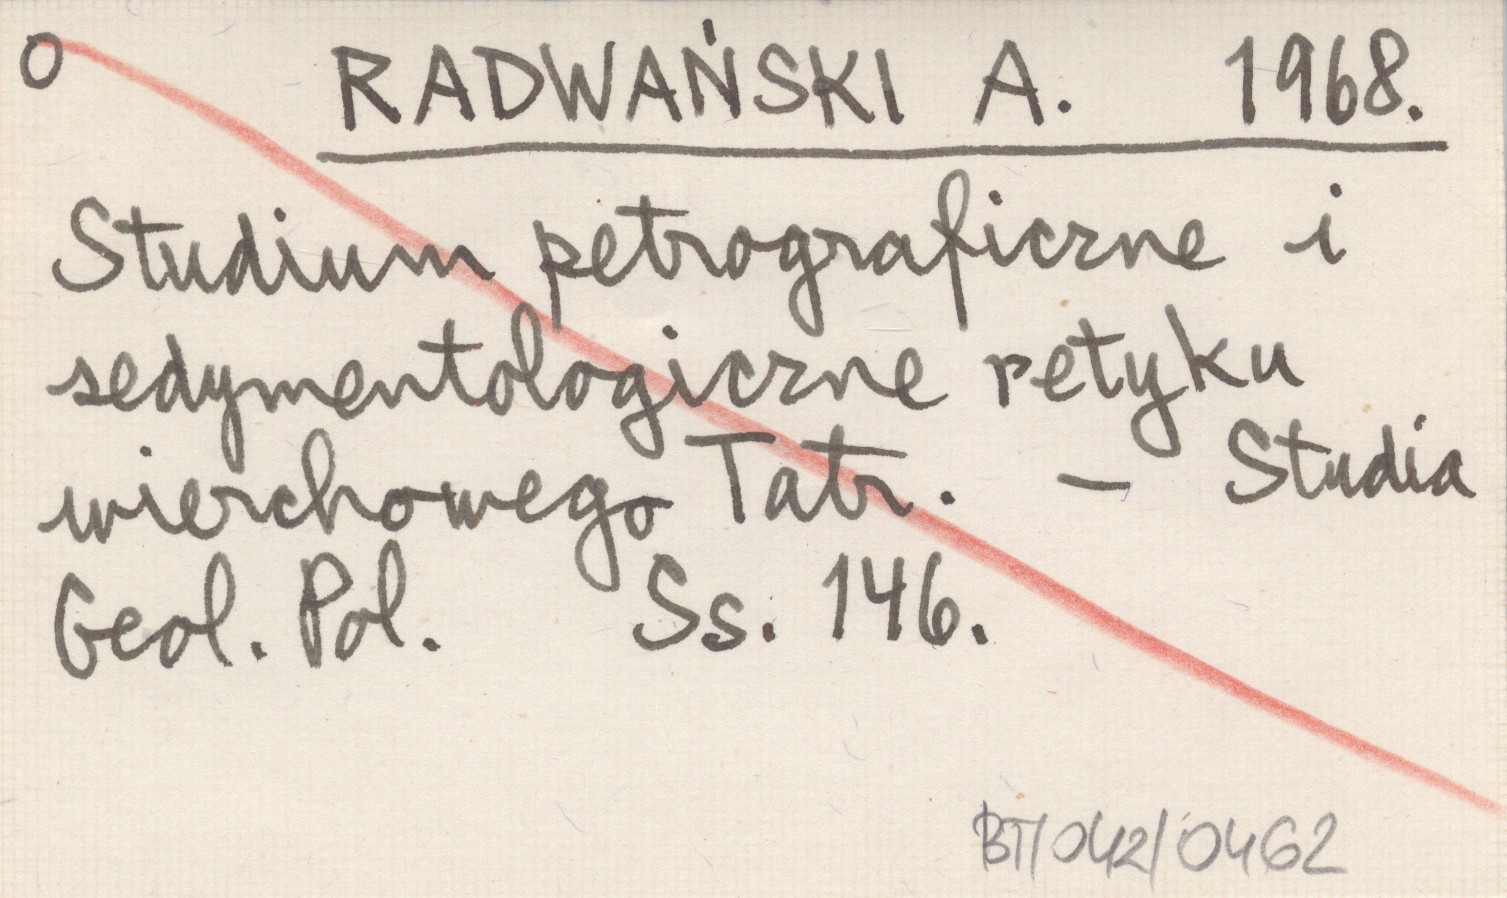 O RADWAŃSKI A. 1968.
Studium petrograficzne i
sedymentologiczne retyku
wierchowego Tatr. — Studia
Geol. Pol. Ss. 146.
BT/042/0462